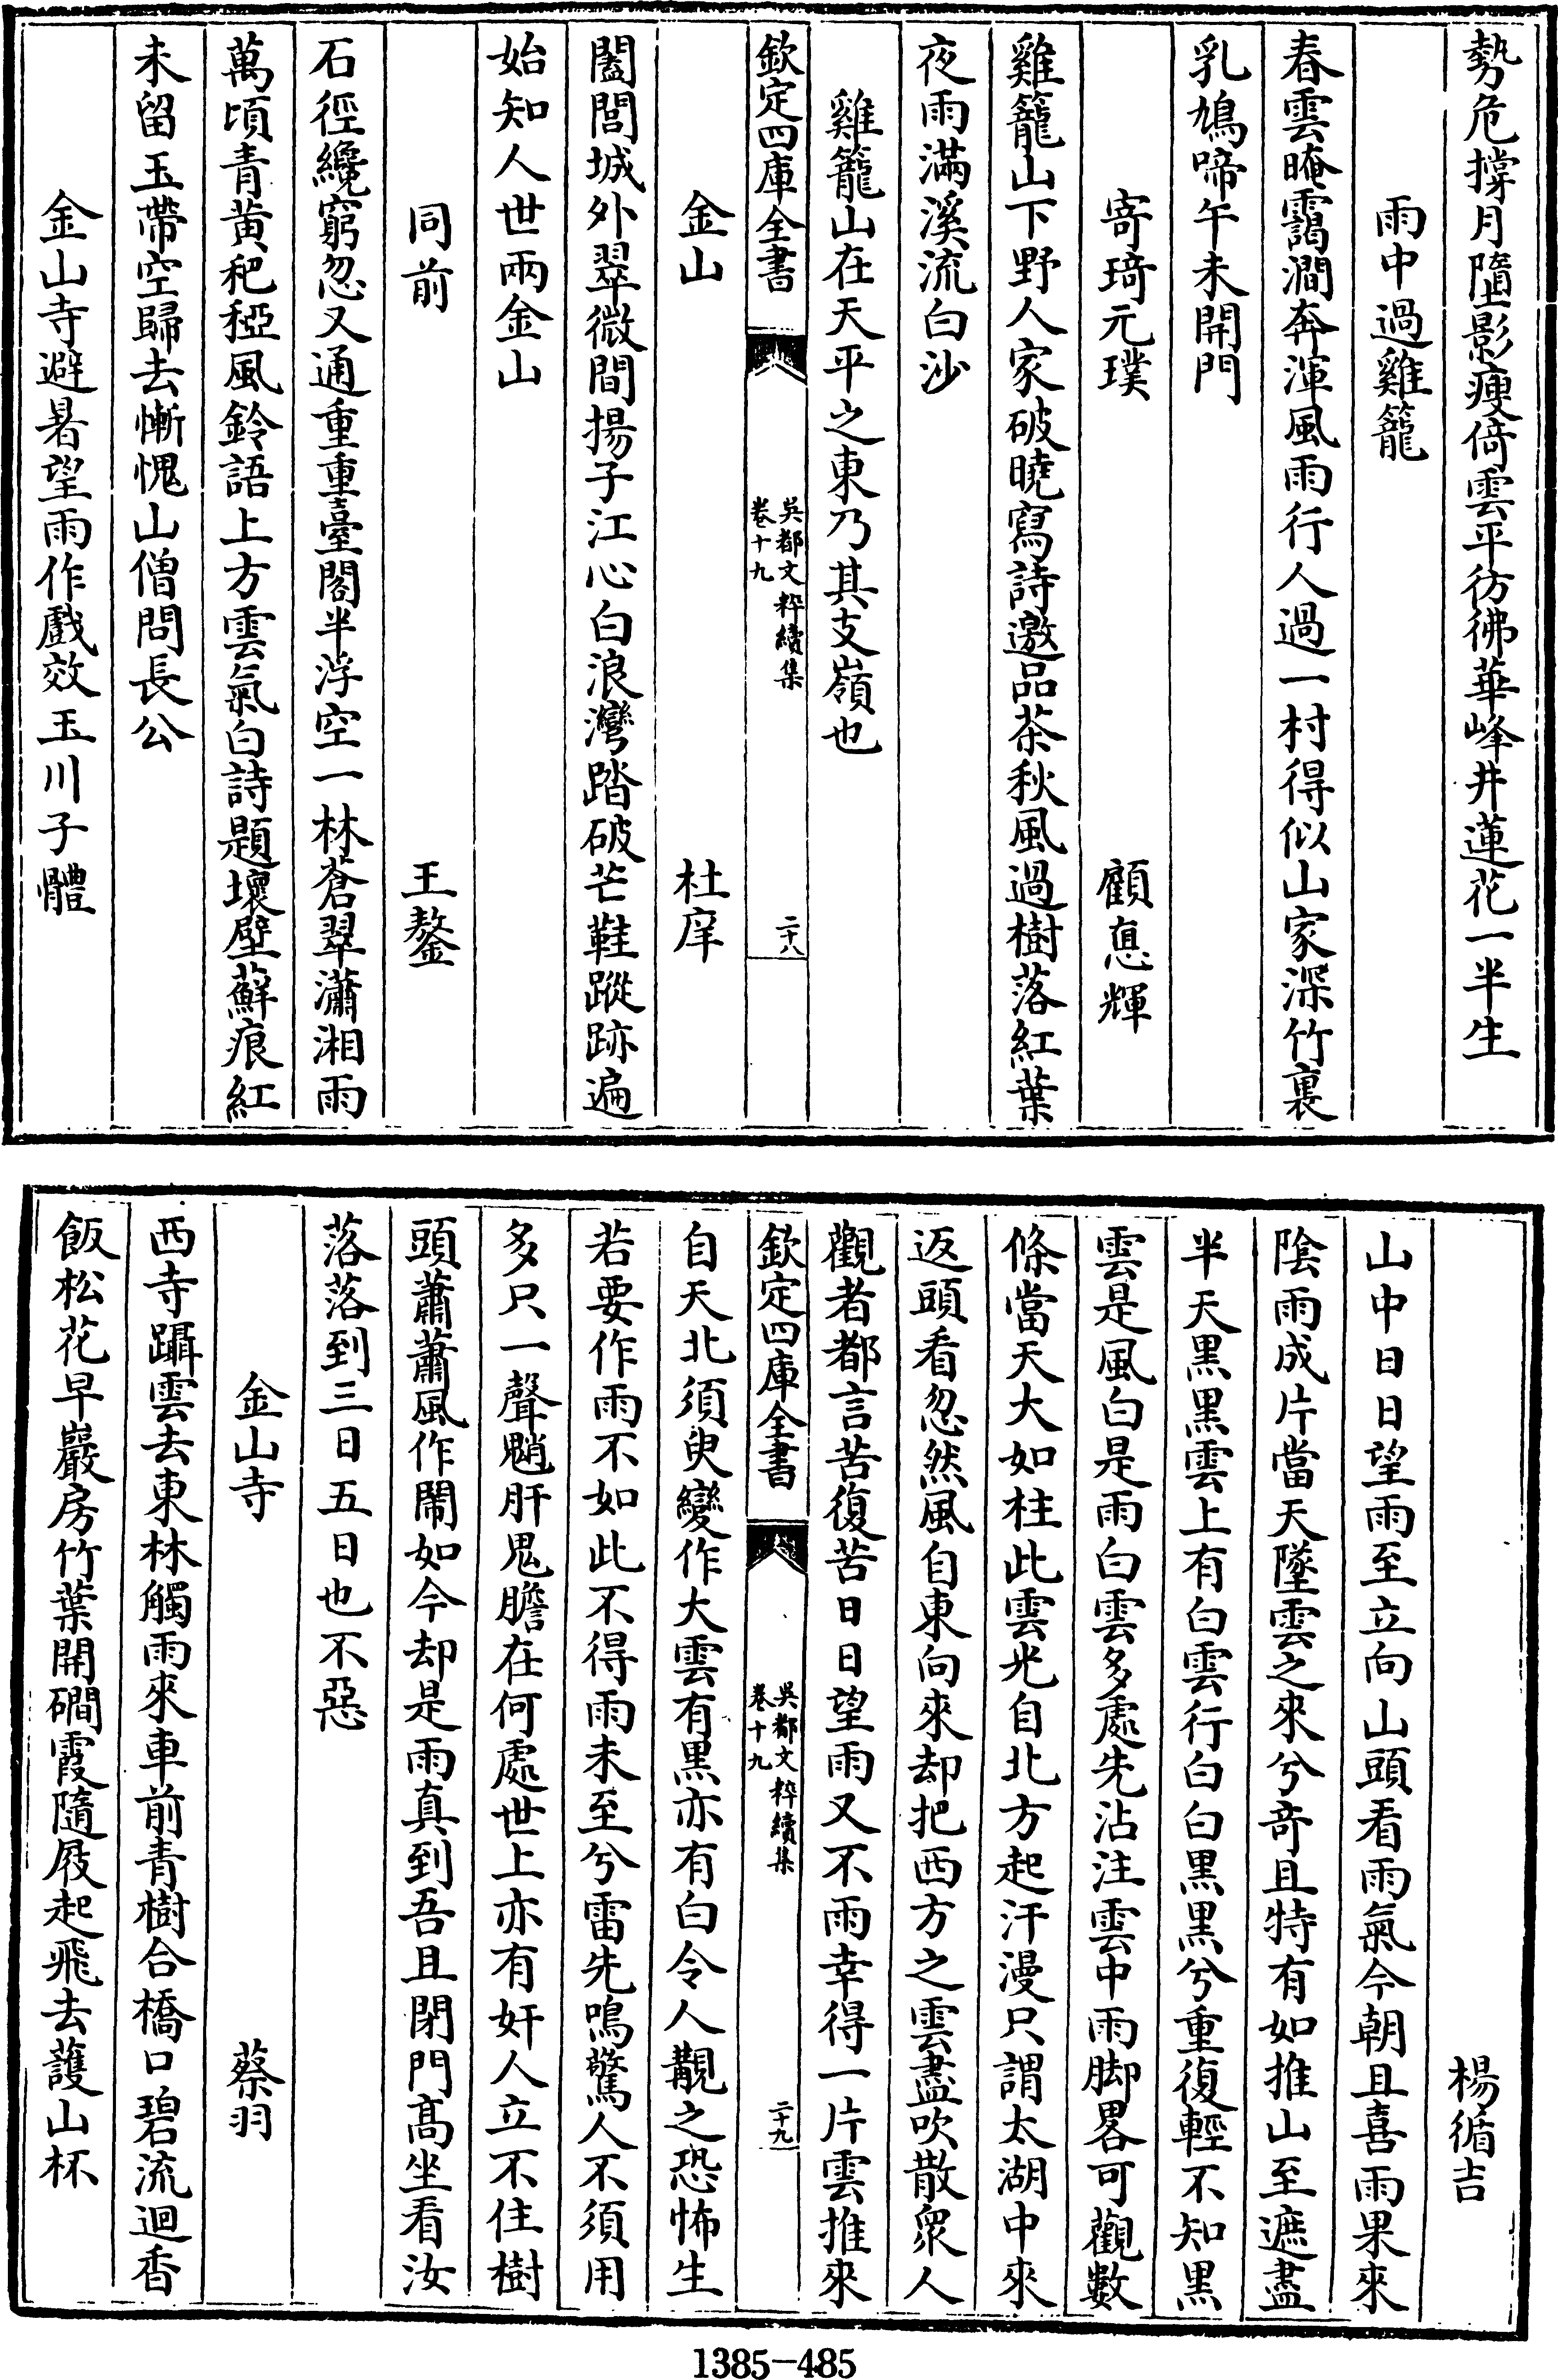 勢危撐月墮影瘦倚雲平彷彿華峰井蓮花一半生
雨中過雞籠
春雲晻靄澗奔渾風雨行人過一村得似山家深竹裏
乳鳩啼午未開門
寄琦元璞 顧悳輝
雞籠山下野人家破曉寫詩邀品茶秋風過樹落紅葉
夜雨滿溪流白沙
雞籠山在天平之東乃其支嶺也
欽定四庫全書 吳都文粹續集 卷十九 二十八
金山 杜庠
闔閭城外翠微間揚子江心白浪灣踏破芒鞋蹤跡遍
始知人世兩金山
同前 王鏊
石徑纔窮忽又通重重臺閣半浮空一林蒼翠瀟湘雨
萬頃青黃䆉稏風鈴語上方雲氣白詩題壞壁蘚痕紅
未留玉帶空歸去慚愧山僧問長公
金山寺避暑望雨作戲效玉川子體
楊循吉
山中日日望雨至立向山頭看雨氣今朝且喜雨果來
陰雨成片當天墜雲之來兮奇且特有如推山至遮盡
半天黑黑雲上有白雲行白白黑黑兮重復輕不知黑
雲是風白是雨白雲多處先沾注雲中雨脚畧可觀數
條當天大如柱此雲光自北方起汗漫只謂太湖中來
返頭看忽然風自東向來却把西方之雲盡吹散衆人
觀者都言苦復苦日日望雨又不雨幸得一片雲推來
欽定四庫全書 吳都文粹續集 卷十九 二十九
自天北須臾變作大雲有黑亦有白令人覩之恐怖生
若要作雨不如此不得雨未至兮雷先鳴驚人不須用
多只一聲魈肝鬼膽在何處世上亦有奸人立不住樹
頭蕭蕭風作鬧如今却是雨真到吾且閉門高坐看汝
落落到三日五日也不惡
金山寺 蔡羽
西寺躡雲去東林觸雨來車前青樹合橋口碧流迴香
飯松花早巖房竹葉開磵霞隨屐起飛去護山杯
1385-485